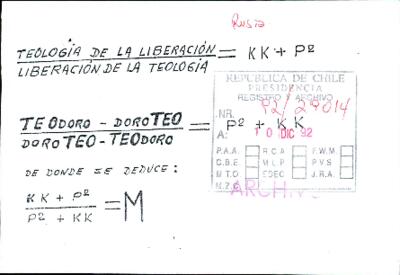 TEOLOGÍA DE LA LIBERACIÓN = KK + P²
LIBERACIÓN DE LA TEOLOGIA
REPUBLICA DE CHILE
PRESIDENCIA
REGISTRO Y ARCHIVO
NR. 92/29014
A: 10 DIC 92
P.A.A. R.C.A. F.W.M.
C.B.E. M.L.P. P.V.S.
M.T.O. EDEC J.R.A.
M.Z.C.
ARCHIVO
TEODORO - DOROTEO = P² + KK
DOROTEO - TEODORO
DE DONDE SE DEDUCE:
KK + P² = M
P² + KK